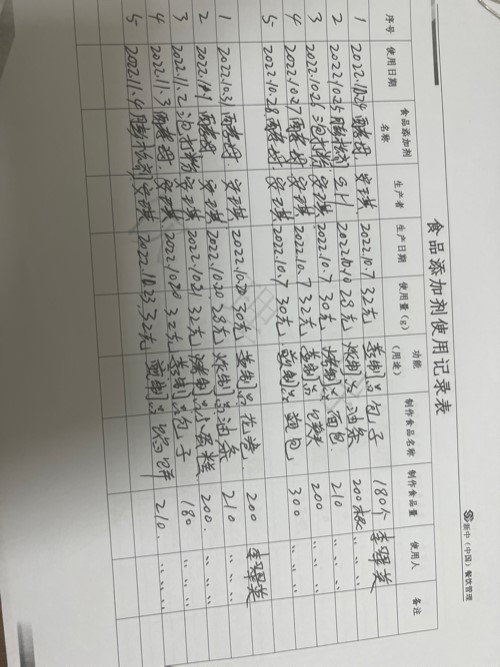 新中（中国）餐饮管理
食品添加剂使用记录表
序号 使用日期 食品添加剂名称 生产者 生产日期 使用量（g） 功能（用途） 制作食品名称 制作食品量 使用人 备注
1 2022.10.24 酵母 安琪 2022.10.7 32克 蒸制品 包子 180个 李翠英
2 2022.10.25 膨松剂 2022.10.10 28克 炸制品 油条 200根 〃 〃
3 2022.10.26 泡打粉 安琪 2022.10.7 30克 烤制品 面包 210 〃 〃
4 2022.10.27 酵母 安琪 2022.10.7 32克 蒸制品 200 〃 〃
5 2022.10.28 酵母 安琪 2022.10.7 30克 制品 包 300 〃 〃
1 2022.10.31 酵母 安琪 2022.10.20 30克 蒸制品 花卷 200 李翠英
2 2022.11.1 酵母 安琪 2022.10.20 28克 炸制品 油条 210 〃 〃
3 2022.11.2 泡打粉 安琪 2022.10.21 32克 烤制品 小蛋糕 200 〃 〃
4 2022.11.3 酵母 安琪 2022.10.20 32克 蒸制品 包子 180 〃 〃
5 2022.11.4 膨松剂 安琪 2022.10.23 32克 制品 210 〃 〃